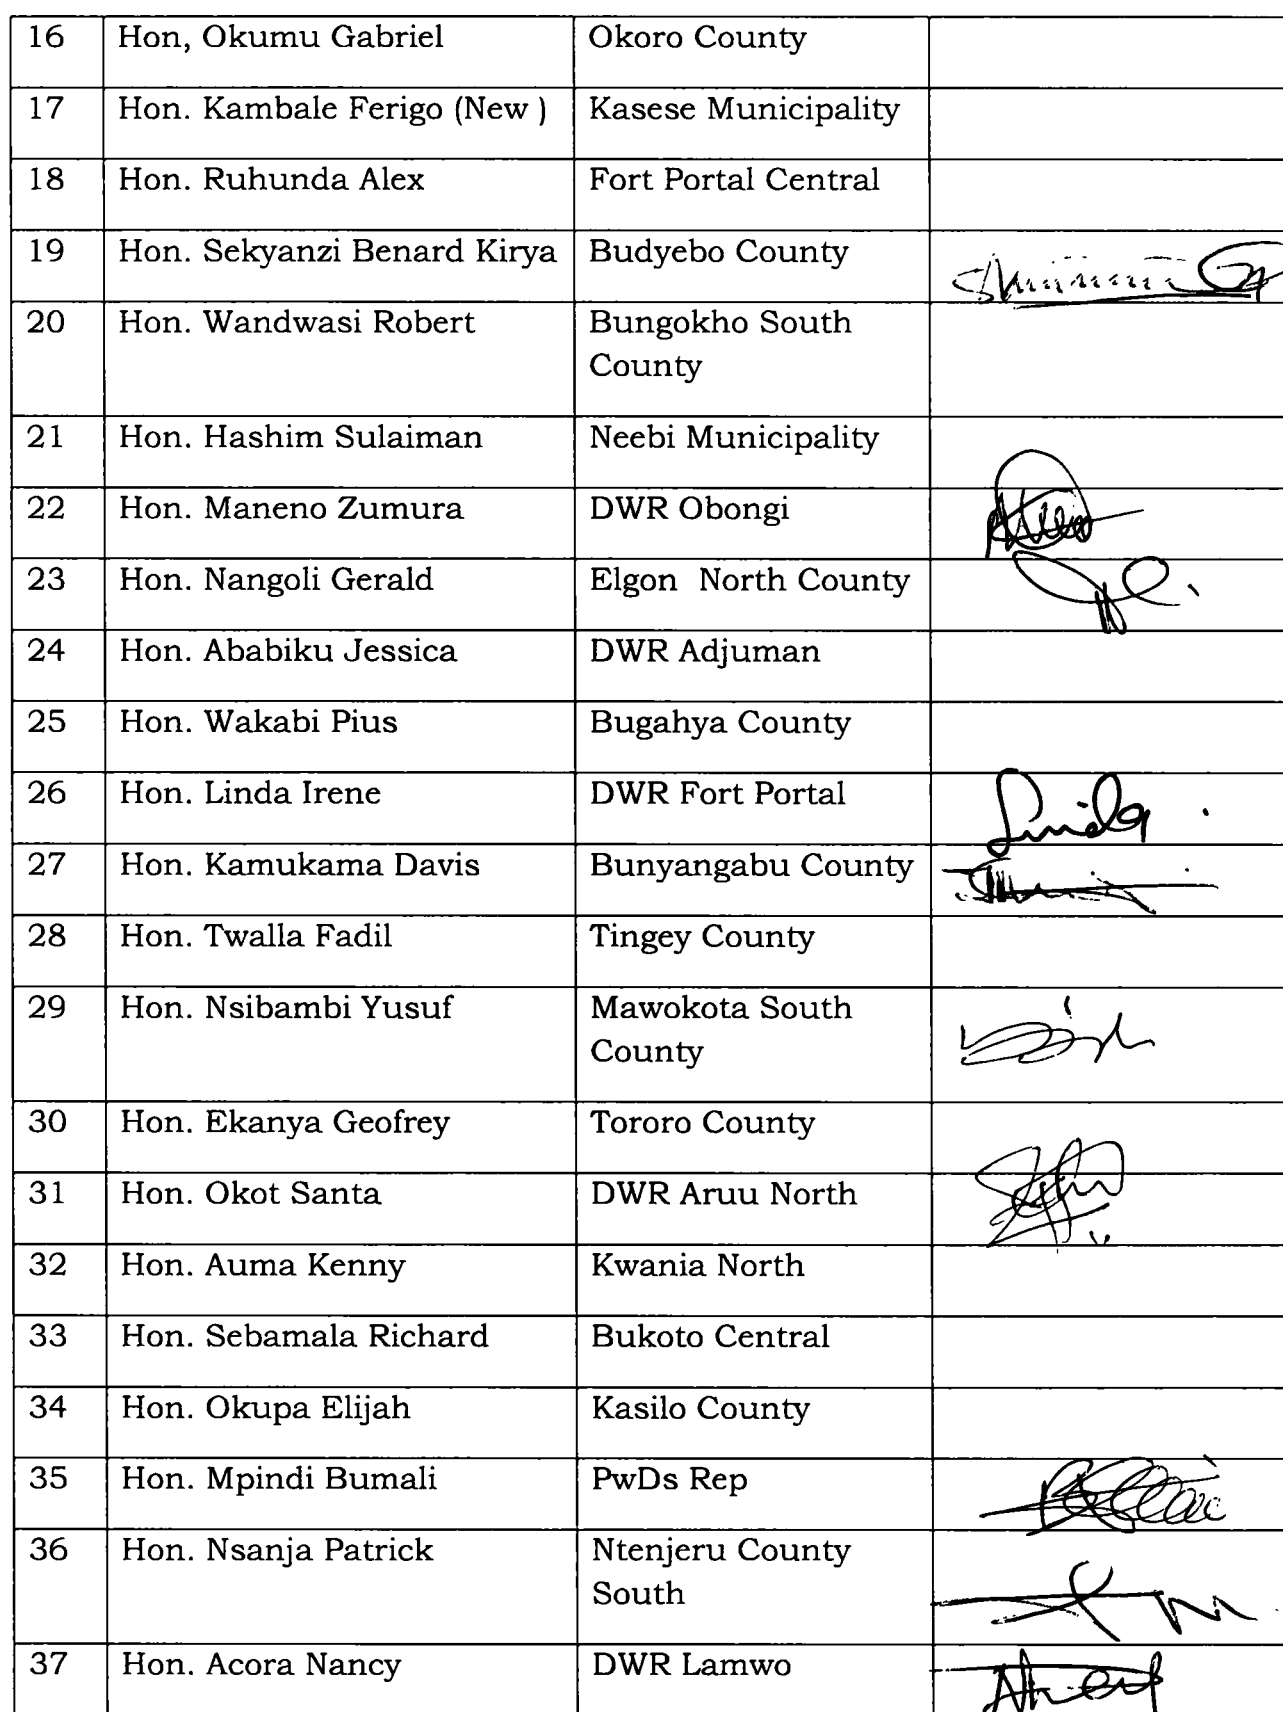 16 Hon, Okumu Gabriel Okoro County
17 Hon. Kambale Ferigo (New ) Kasese Municipality
18 Hon. Ruhunda Alex Fort Portal Central
19 Hon. Sekyanzi Benard Kirya Budyebo County
20 Hon. Wandwasi Robert Bungokho South
County
21 Hon. Hashim Sulaiman Neebi Municipality
22 Hon. Maneno Zumura DWR Obongi
23 Hon. Nangoli Gerald Elgon North County
24 Hon. Ababiku Jessica DWR Adjuman
25 Hon. Wakabi Pius Bugahya County
26 Hon. Linda Irene DWR Fort Portal Linda
27 Hon. Kamukama Davis Bunyangabu County
28 Hon. Twalla Fadil Tingey County
29 Hon. Nsibambi Yusuf Mawokota South
County
30 Hon. Ekanya Geofrey Tororo County
31 Hon. Okot Santa DWR Aruu North
32 Hon. Auma Kenny Kwania North
33 Hon. Sebamala Richard Bukoto Central
34 Hon. Okupa Elijah Kasilo County
35 Hon. Mpindi Bumali PwDs Rep
36 Hon. Nsanja Patrick Ntenjeru County
South
37 Hon. Acora Nancy DWR Lamwo